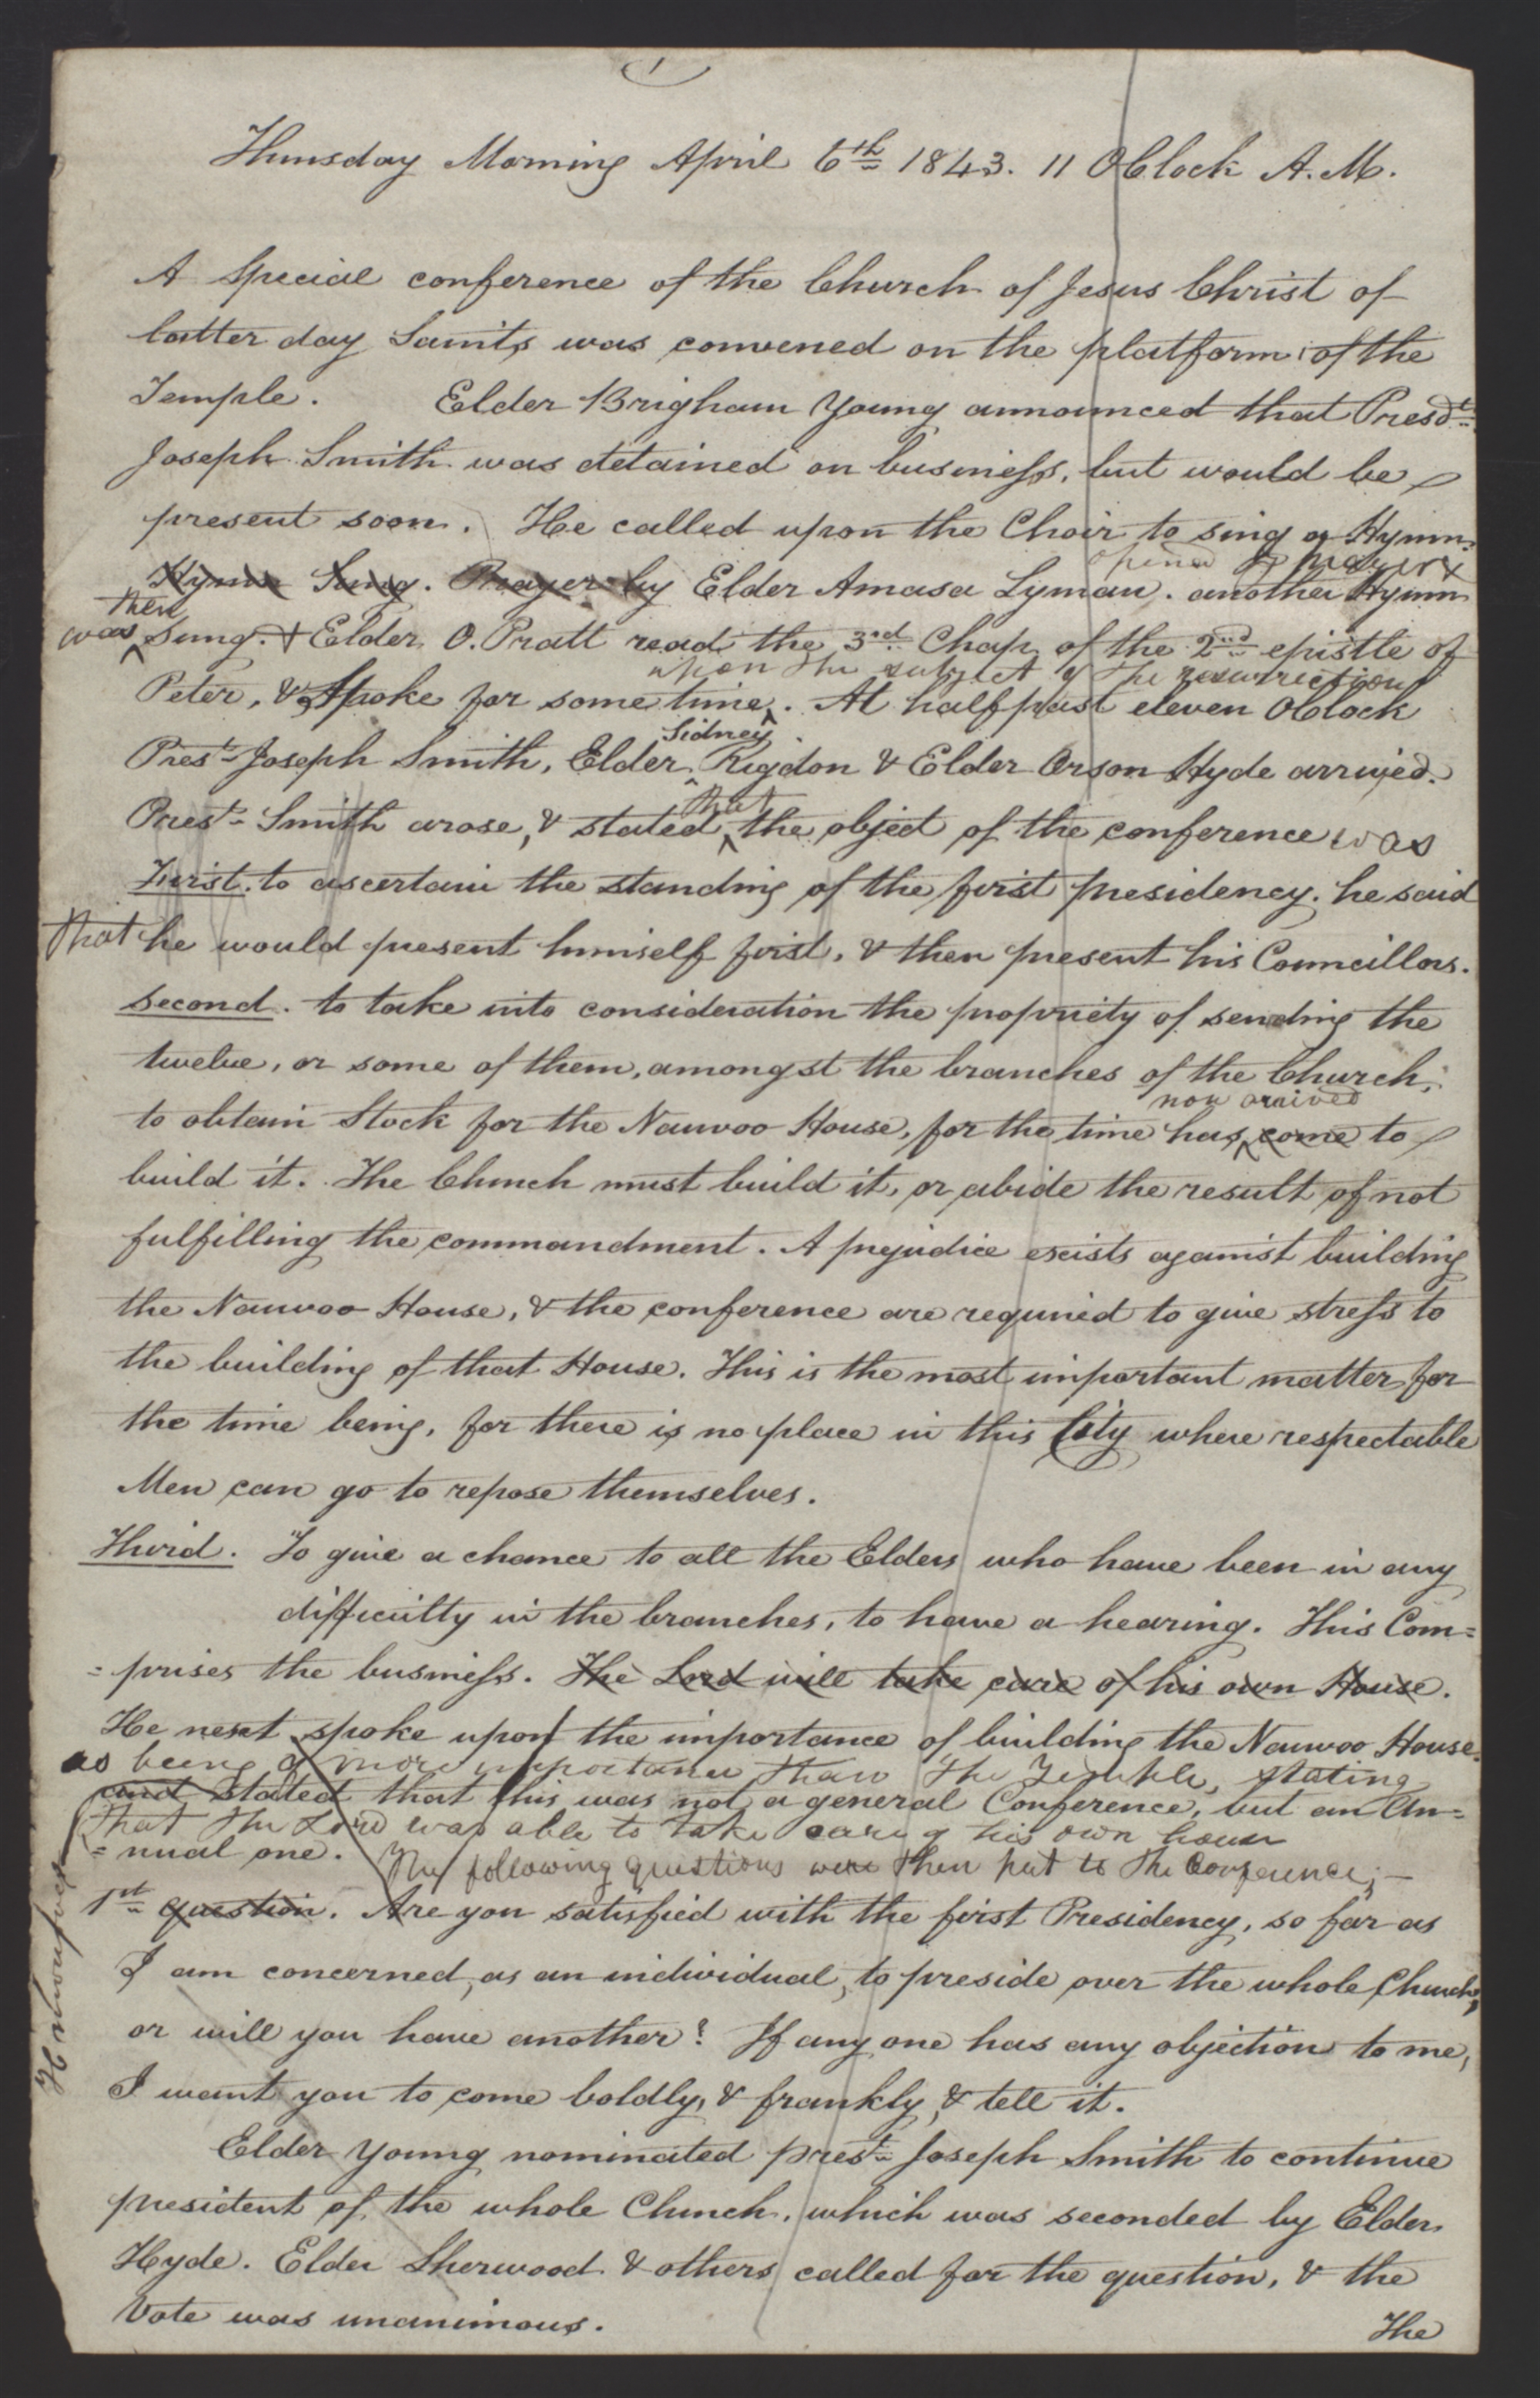 1
Thursday Morning April 6th 1843. 11 OClock A.M.
A Special conference of the Church of Jesus Christ of
latter day Saints was convened on the platform of the
Temple. Elder Brigham Young announced that Presdt.
Joseph Smith was detained on business, but would be
present soon. He called upon the Choir to sing a Hymn.
opened by prayer &
Hymn Sung. Prayer by Elder Amasa Lyman. another Hymn
then
was sung. & Elder O. Pratt read the 3rd Chap of the 2nd epistle of
upon the subject of the resurrection
Peter, & Spoke for some time. At half past eleven OClock
Sidney
Prest. Joseph Smith, Elder Rigdon & Elder Orson Hyde arrived.
that
Prest. Smith arose, & stated the object of the conference was
First. to ascertain the standing of the first presidency. he said
that he would present himself first, & then present his Councillors.
Second. to take into consideration the propriety of sending the
twelve, or some of them, amongst the branches of the Church,
now arrived
to obtain Stock for the Nauvoo House, for the time has come to
build it. The Church must build it, or abide the result of not
fulfilling the commandment. A prejudice exists against building
the Nauvoo House, & the conference are required to give stress to
the building of that House. This is the most important matter for
the time being, for there is no place in this City where respectable
Men can go to repose themselves.
Third. To give a chance to all the Elders who have been in any
difficulty in the branches, to have a hearing. This Com=
=prises the business. The Lord will take care of his own House.
He next spoke upon the importance of building the Nauvoo House.
as being of more importance than the Temple, stating
and Stated that this was not a general Conference, but an An=
that the Lord was able to take care of his own house
=nual one. The following questions were then put to the Conference;—
1st question. Are you satisfied with the first Presidency, so far as
I am concerned, as an individual, to preside over the whole Church,
or will you have another? If any one has any objection to me,
I want you to come boldly, & frankly, & tell it.
Elder Young nominated prest. Joseph Smith to continue
president of the whole Church, which was seconded by Elder
Hyde. Elder Sherwood & others called for the question, & the
Vote was unanimous.
The